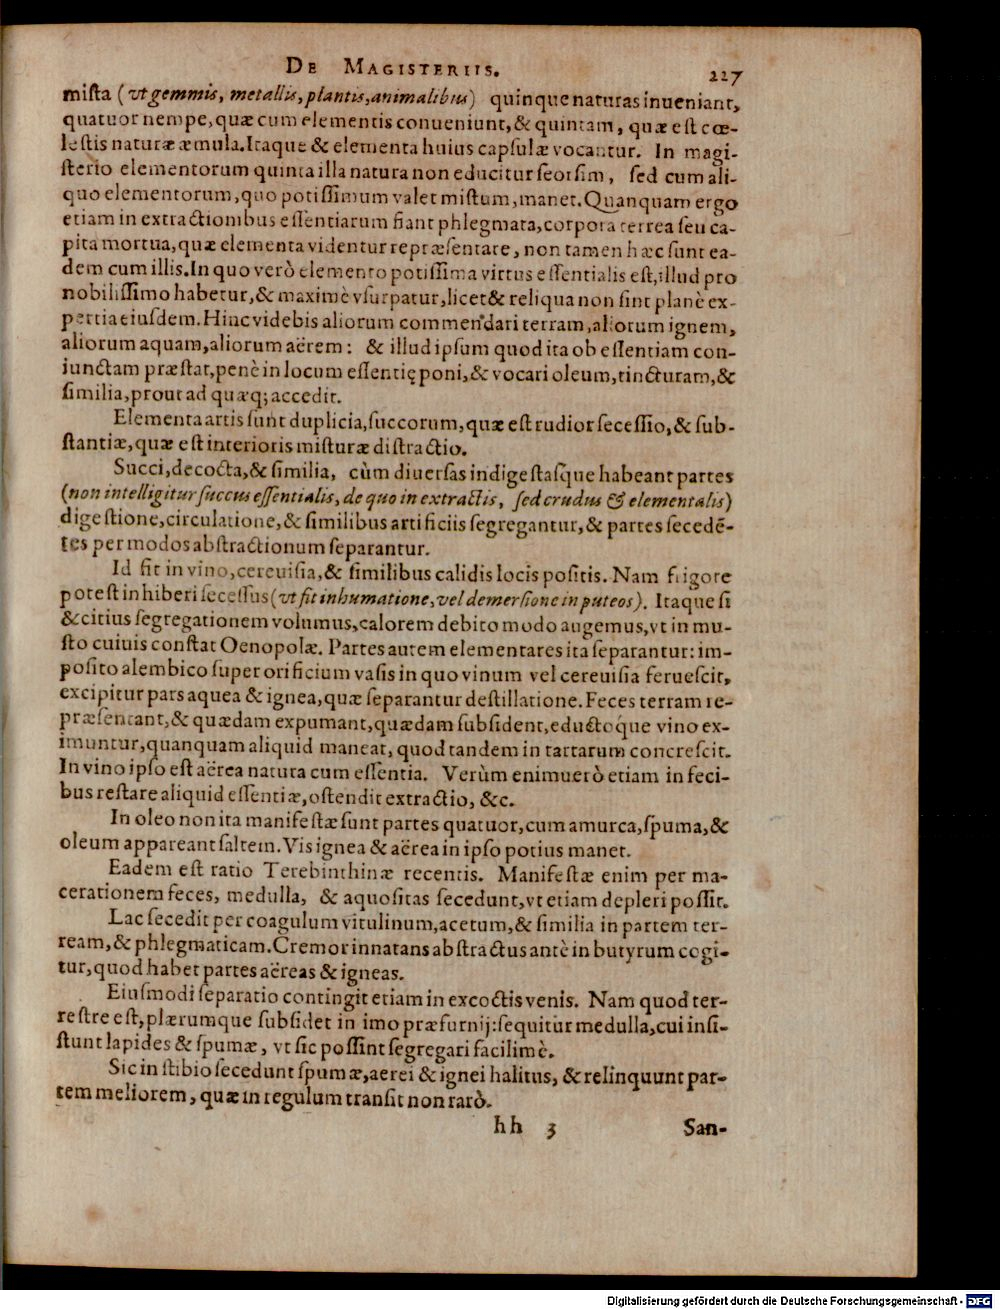 DE MAGISTERIIS. 227
miſta (vt gemmis, metallis, plantis, animalibus) quinque naturas inueniant,
quatuor nempe, quæ cum elementis conueniunt, & quintam, quæ eſt cœ-
leſtis naturæ æmula. Itaque & elementa huius capſulæ vocantur. In magi-
ſterio elementorum quinta illa natura non educitur ſeorſim, ſed cum ali-
quo elementorum, quo potiſſimum valet miſtum, manet. Quanquam ergo
etiam in extractionibus eſſentiarum fiant phlegmata, corpora terrea ſeu ca-
pita mortua, quæ elementa videntur repræſentare, non tamen hæc ſunt ea-
dem cum illis. In quo verò elemento potiſſima virtus eſſentialis eſt, illud pro
nobiliſſimo habetur, & maximè vſurpatur, licet & reliqua non ſint planè ex-
pertia eiuſdem. Hinc videbis aliorum commendari terram, aliorum ignem,
aliorum aquam, aliorum aërem: & illud ipſum quod ita ob eſſentiam con-
iunctam præſtat, penè in locum eſſentię poni, & vocari oleum, tincturam, &
ſimilia, prout ad quæq; accedit.
Elementa artis ſunt duplicia, ſuccorum, quæ eſt rudior ſeceſſio, & ſub-
ſtantiæ, quæ eſt interioris miſturæ diſtractio.
Succi, decocta, & ſimilia, cùm diuerſas indigeſtaſque habeant partes
(non intelligitur ſuccus eſſentialis, de quo in extractis, ſed crudus & elementalis)
digeſtione, circulatione, & ſimilibus artificiis ſegregantur, & partes ſecedē-
tes per modos abſtractionum ſeparantur.
Id fit in vino, cereuiſia, & ſimilibus calidis locis poſitis. Nam frigore
poteſt inhiberi ſeceſſus (vt fit inhumatione, vel demerſione in puteos). Itaque ſi
& citius ſegregationem volumus, calorem debito modo augemus, vt in mu-
ſto cuiuis conſtat Oenopolæ. Partes autem elementares ita ſeparantur: im-
poſito alembico ſuper orificium vaſis in quo vinum vel cereuiſia ferueſcit,
excipitur pars aquea & ignea, quæ ſeparantur deſtillatione. Feces terram re-
præſentant, & quædam expumant, quædam ſubſident, eductoque vino ex-
imuntur, quanquam aliquid maneat, quod tandem in tartarum concreſcit.
In vino ipſo eſt aërea natura cum eſſentia. Verùm enimuerò etiam in feci-
bus reſtare aliquid eſſentiæ, oſtendit extractio, &c.
In oleo non ita manifeſtæ ſunt partes quatuor, cum amurca, ſpuma, &
oleum appareant ſaltem. Vis ignea & aërea in ipſo potius manet.
Eadem eſt ratio Terebinthinæ recentis. Manifeſtæ enim per ma-
cerationem feces, medulla, & aquoſitas ſecedunt, vt etiam depleri poſſit.
Lac ſecedit per coagulum vitulinum, acetum, & ſimilia in partem ter-
ream, & phlegmaticam. Cremor innatans abſtractus antè in butyrum cogi-
tur, quod habet partes aëreas & igneas.
Eiuſmodi ſeparatio contingit etiam in excoctis venis. Nam quod ter-
reſtre eſt, plærumque ſubſidet in imo præfurnij: ſequitur medulla, cui inſi-
ſtunt lapides & ſpumæ, vt ſic poſſint ſegregari facilimè.
Sic in ſtibio ſecedunt ſpumæ, aerei & ignei halitus, & relinquunt par-
tem meliorem, quæ in regulum tranſit non rarò.
hh 3 San-
Digitalisierung gefördert durch die Deutsche Forschungsgemeinschaft - DFG